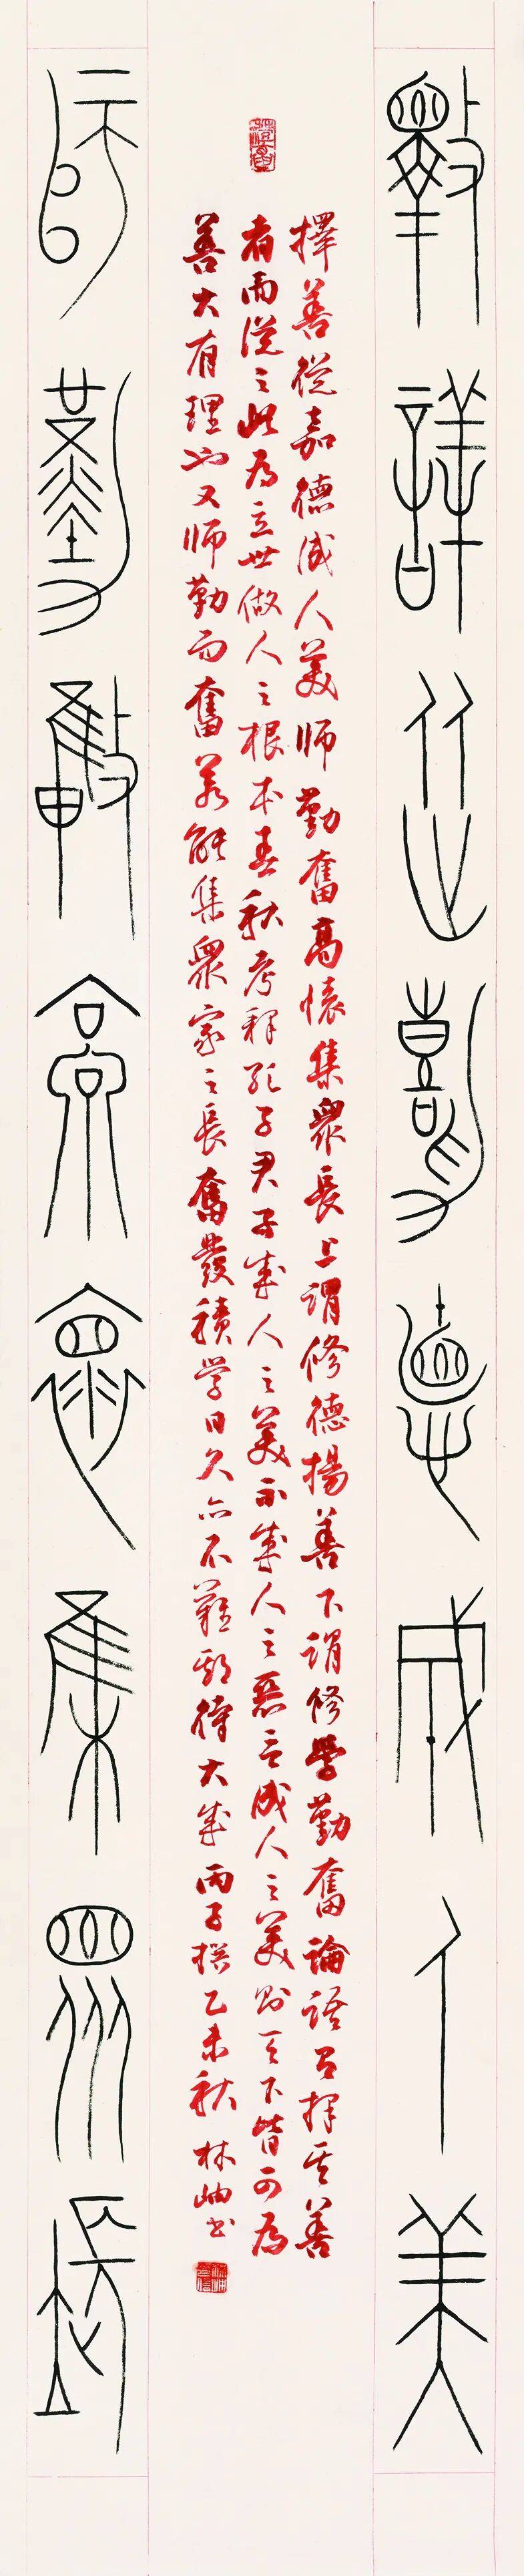 擇善從嘉德成人美
擇善從嘉德成人美師勤奮高懷集眾長上謂修德揚善下謂修學勤奮論語曰擇其善
者而從之此為立世做人之根本春秋考釋孔子君子成人之美不成人之惡言成人之美則天下皆可為
善大有理也又師勤而奮若能集眾家之長奮發積學日久亦不難期待大成丙子撰乙未秋林岫書
師勤奮高懷集眾長